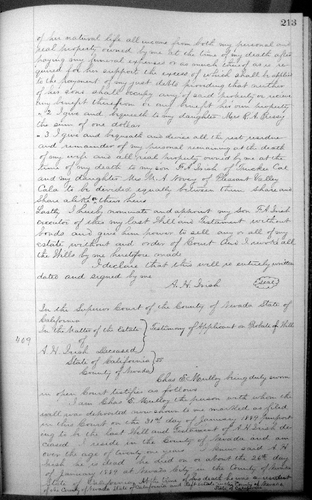 213
of his natural life all income from both my personal and
real property owned by me at the time of my death after
paying my funeral expenses or as much thereof as is re
quired for his support the excess of which shall be added
to the payment of my just debts providing that neither
of his sons shall occupy any of said property or receive
any benefit therefrom or
2 I give and bequeath to my daughter Mrs
the sum of one dollar
3 I give and bequeath and devise all the rest residue
and remainder of my personal remaining at the death
of my wife and all real property owned by me at the
time of my death to my son F. A. Irish of Truckee Cal
and my daughter Mrs of Pleasant Valley
Cala to be divided equally between them share and
share alike or their heirs
Lastly I hereby nominate and appoint my son F A Irish
executor of this my last Will and Testament without
bonds and give him power to sell any or all of my
estate without and order of Court And I revoke all
the Wills by me heretofore made
I declare that this will is entirely written
dated and signed by me
A. H. Irish (Seal)
In the Superior Court of the County of Nevada State of
California
In the Matter of the Estate Testimony of Applicant on Probate of Will
409 of
A. H. Irish Deceased
State of California } ss
County of Nevada
Chas E being duly sworn
in open Court testifies as follows
I am Chas E the person with whom the
will was deposited now shown to me marked as filed
in this Court on the 31st day of January 1884 purport
ing to be the last Will and Testament of A. H. Irish de
ceased I reside in the County of Nevada and am
over the age of twenty years I knew said A H
Irish he is dead He died on or about the 26th day
of January 1884 at Nevada City in the County of Nevada
State of California At the time of his death he was a resident
of the County of Nevada State of California and left estate in the County of Nevada
State of California